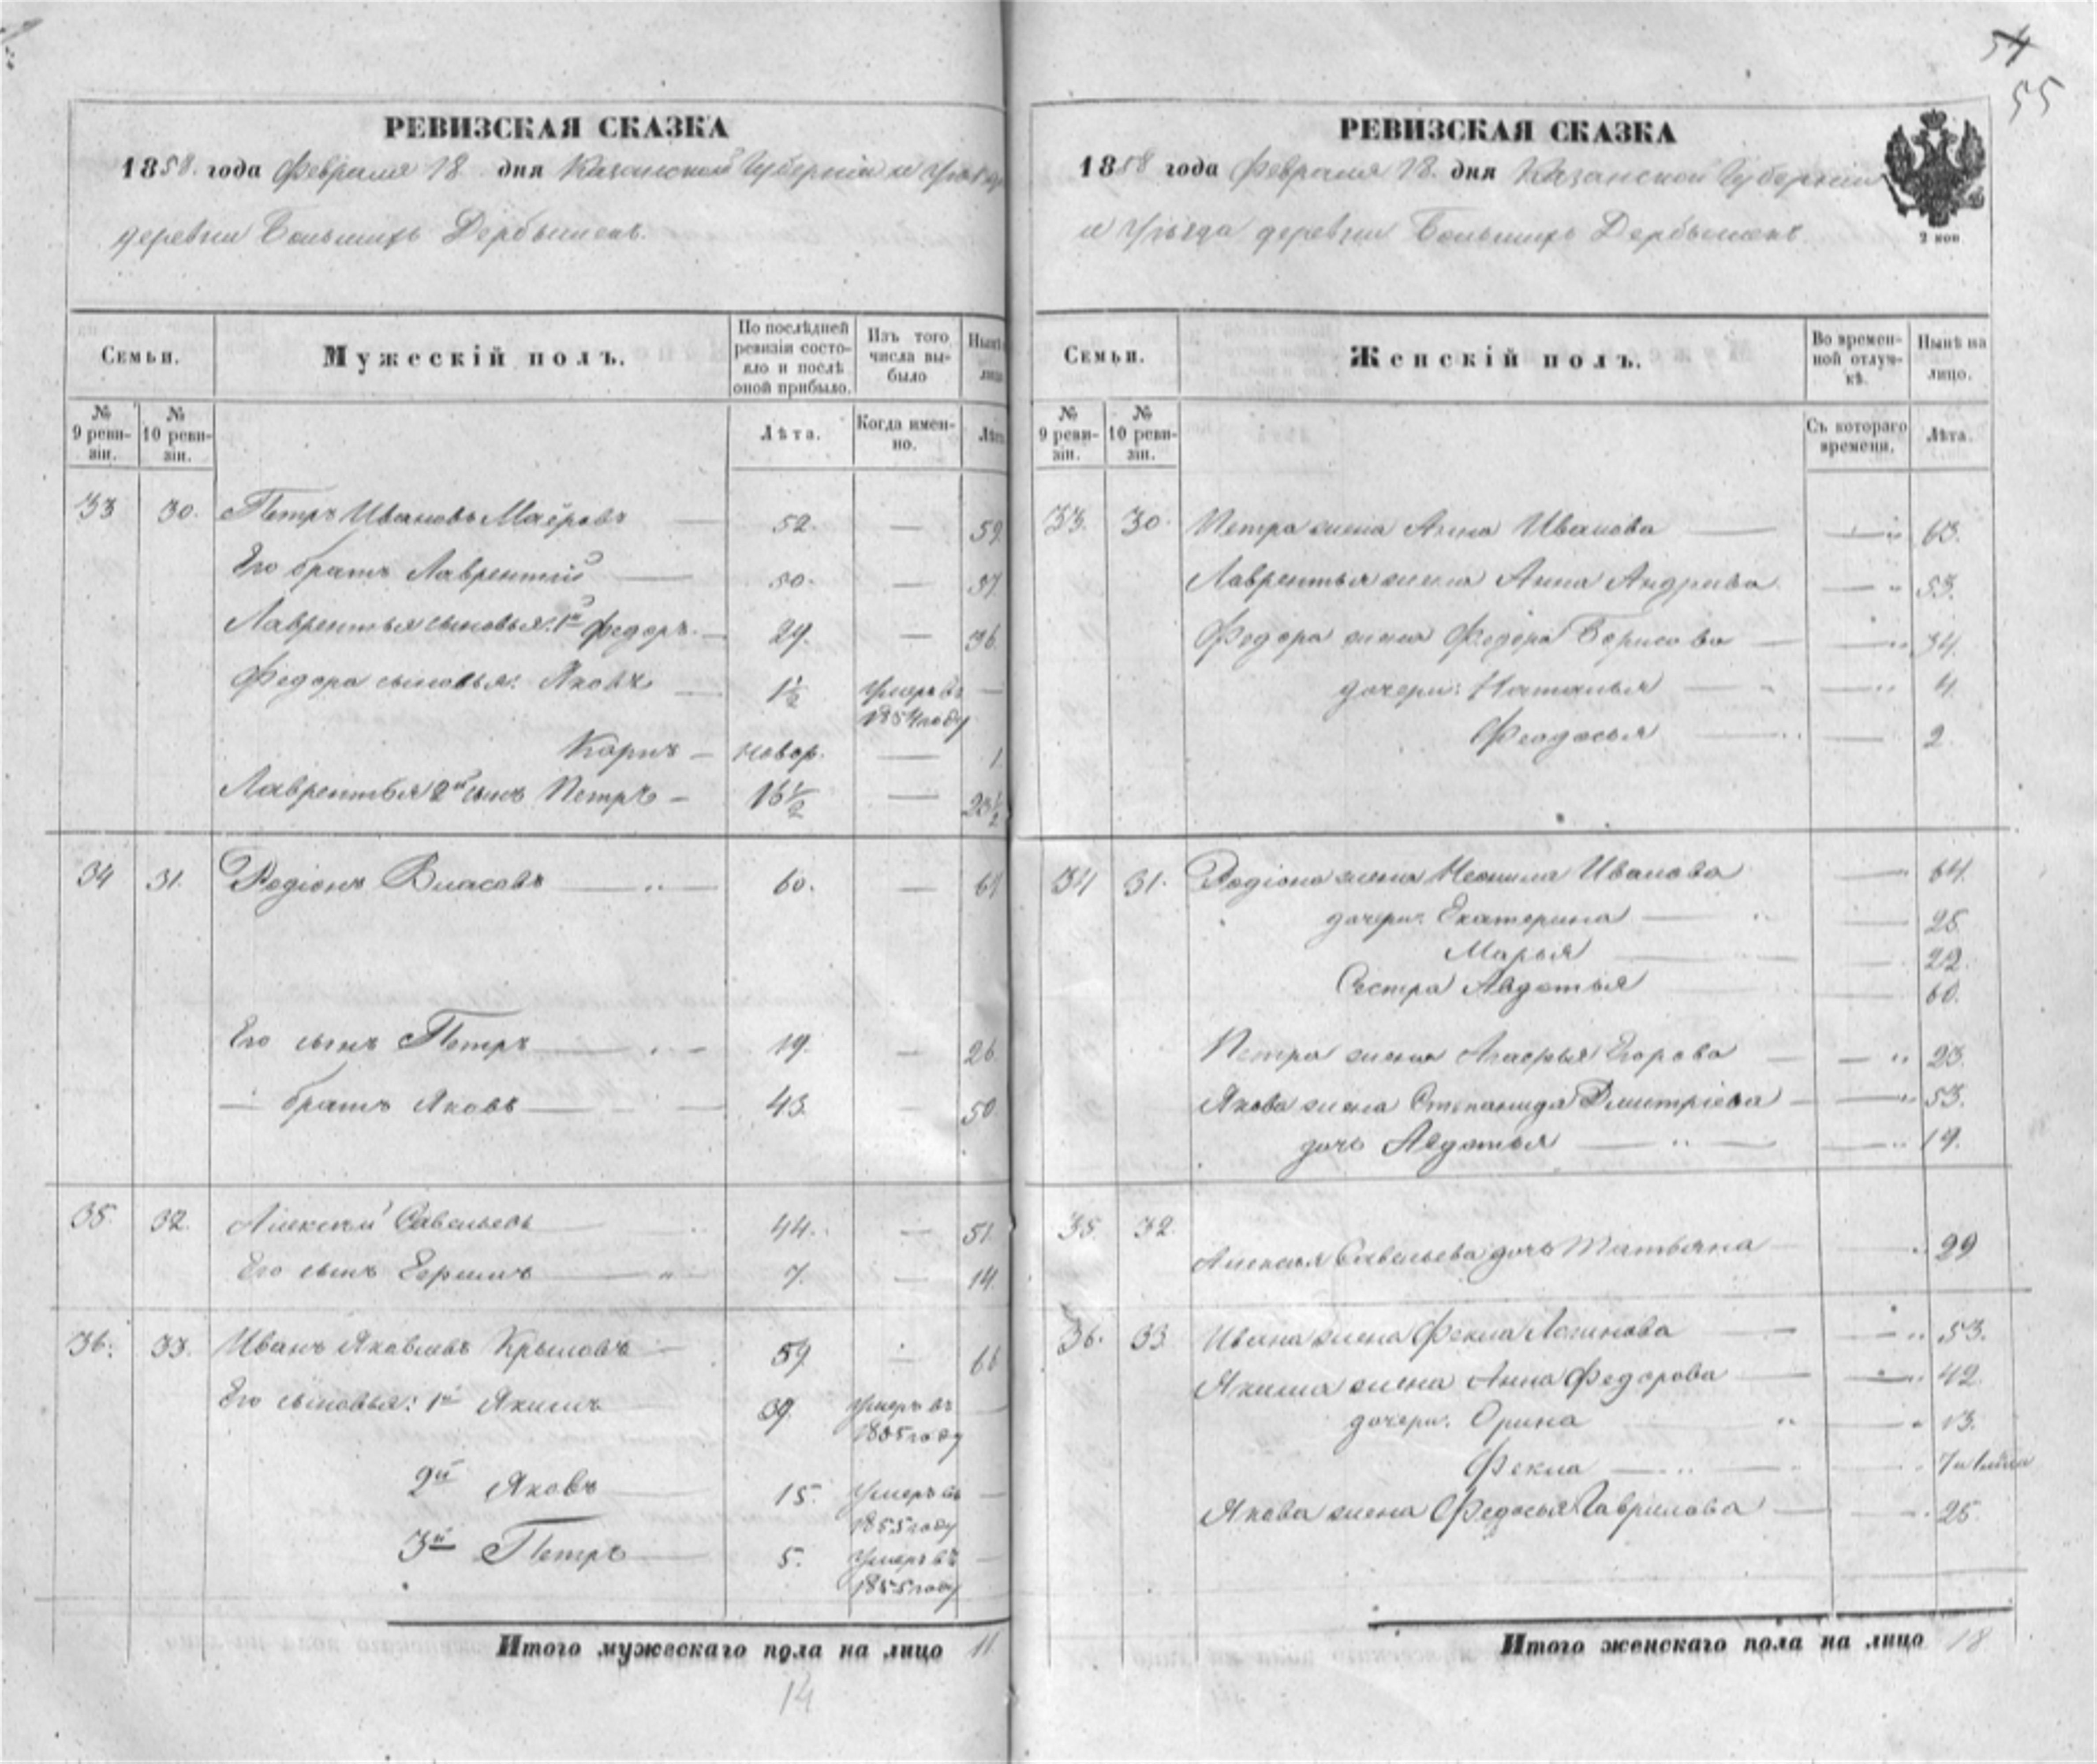 54
55
РЕВИЗСКАЯ СКАЗКА
1858 года Февраля 18 дня Казанской Губернии и Уѣзда
деревни Большихъ Дербышекъ.
Семьи.
Мужескій полъ.
По послѣдней ревизіи состояло и послѣ оной прибыло.
Изъ того числа выбыло
Нынѣ
лицо
№ 9 ревизіи.
№ 10 ревизіи.
Лѣта.
Когда именно.
Лѣта
33 30. Петръ Ивановъ Маёровъ — 52. — 59.
Его братъ Лаврентій — 50. — 57.
Лаврентья сыновья: 1й Федоръ. — 29. — 36.
Федора сыновья: Яковъ — 1½ умеръ въ —
1854 году
новор. — 1
Лаврентья 2й сынъ Петръ — 16½ — 23½
34 31. Родіонъ Власовъ — 60. — 67
Его сынъ Петръ — 19. — 26.
— братъ Яковъ — 43. — 50.
35. 32. Алексѣй Савельевъ — 44. — 51.
Его сынъ Ефимъ — 7. — 14.
36. 33. Иванъ Яковлевъ Крыловъ — 59 — 66
Его сыновья: 1й Якимъ 39. умеръ въ —
1855 году
2й Яковъ — 15. умеръ въ —
1855 году
3й Петръ — 5. умеръ въ —
1855 году
Итого мужескаго пола на лицо 11
14
РЕВИЗСКАЯ СКАЗКА
1858 года Февраля 18. дня Казанской Губерніи
и Уѣзда деревни Большихъ Дербышекъ.
2 коп
Семьи.
Женскій полъ.
Во временной отлучкѣ.
Нынѣ на лицо.
№ 9 ревизіи.
№ 10 ревизіи.
Съ котораго времени.
Лѣта.
33. 30. Петра жена Анна Иванова — — 63.
Лаврентья жена Анна Андреева — 53.
Федора жена Федора Борисова — — 34.
дочери: Наталья — — 4.
Феодосья — — 2.
34 31. Родіона жена Неонила Иванова — 64.
дочери: Екатерина — — 25.
Марья — — 22.
Сестра Авдотья — 60.
Петра жена Агафья Егорова — — 23.
Якова жена Степанида Дмитріева — — 53.
дочь Авдотья — — 19.
35. 32. Алексея Савельева дочь Татьяна — — 29
36. 33. Ивана жена Фекла Логинова — — 53.
Якима жена Анна Федорова — — 42.
дочери: Орина — 13.
Фекла — — 7
Якова жена Федосья Гаврилова — — 25.
Итого женскаго пола на лицо 18